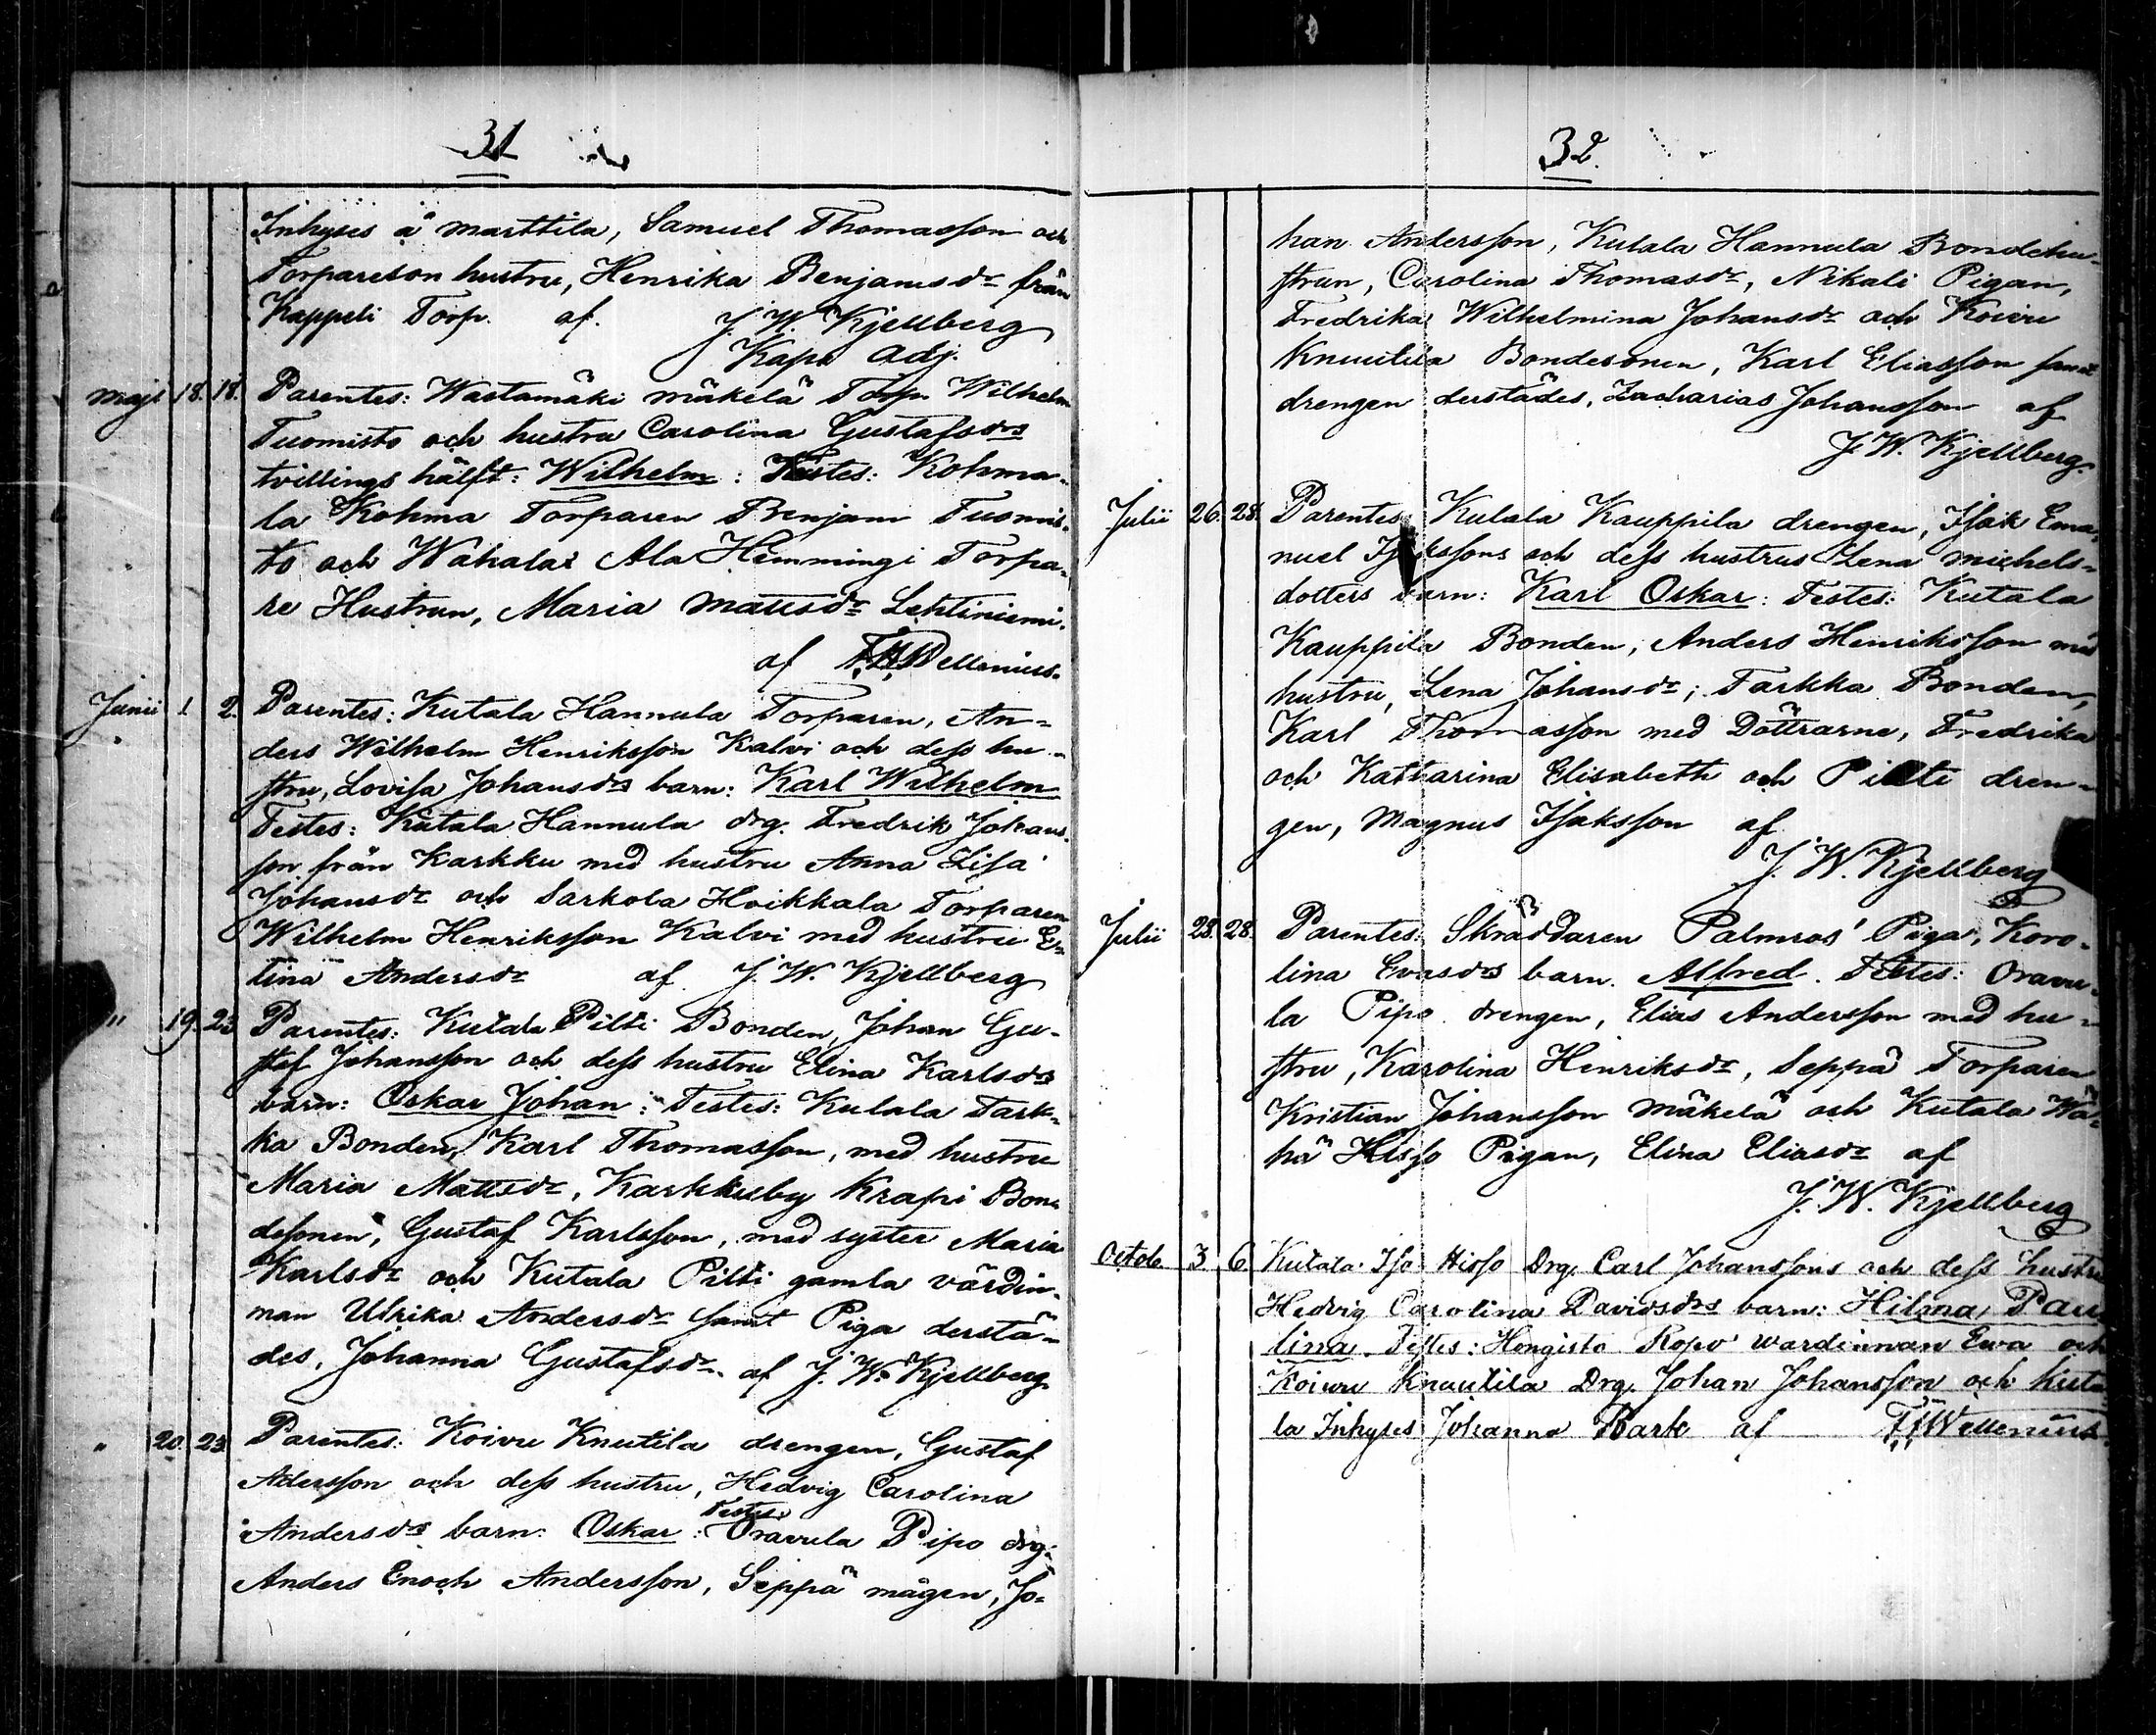 31
Inhyses å Marttila, Samuel Thomasson och
Torpareson hustru, Henrika Benjamsdr från
Kappeli Torp. af. J. W. Kjellberg
Kaps adj.
Maji 18. 18. Parentes: Wastamäki Mäkelä Torp. Wilhelm
Tuomisto och hustru Carolina Gustafsdrs
tvillings hälft: Wilhelm: Testes: Kohma-
la Kohma Torparen Benjam Tuomis-
to och Wahala Ala Hemmingi Torpa-
re Hustrun, Maria Mattsdr Lehtiniemi.
af
Junii 1 2. Parentes: Kutala Hannula Torparen, An-
ders Wilhelm Henriksson Kalvi och dess hu-
stru, Lovisa Johansdrs barn: Karl Wilhelm
Testes: Kutala Hannula drg. Fredrik Johans-
son från Karkku med hustru Anna Lisa
Johansdr och Sarkola Hoikkala Torparen
Wilhelm Henriksson Kalvi med hustru Er-
tina Andersdr af J. W. Kjellberg
" 19. 23 Parentes: Kutala Pilti Bonden, Johan Gu-
staf Johansson och dess hustru Elina Karlsdrs
barn: Oskar Johan: Testes: Kutala Tark-
ka Bonden, Karl Thomasson, med hustru
Maria Mattsdr, Karkkuby Krapi Bon-
desonen, Gustaf Karlsson, med syster Maria
Karlsdr och Kutala Pilti gamla värdin-
nan Ulrika Andersdr samt Piga derstä-
des, Johanna Gustafsdr. af J. W. Kjellberg
" 20. 23 Parentes: Koivu Knutila drengen, Gustaf
Adersson och dess hustru, Hedvig Carolina
Andersdrs barn: Oskar: Testes: Oravula Pipo drg.
Anders Enoch Andersson, Seppä mågen, Jo-
32.
han Andersson, Kutala Hannula Bondehu-
strun, Carolina Thomasdr, Nikali Pigan,
Fredrika Wilhelmina Johansdr och Koivu
Knuutila Bondesonen, Karl Eliasson samt
drengen derstädes, Zacharias Johansson af
J. W. Kjellberg.
Julii 26. 28. Parentes: Kutala Kauppila drengen, Isak Ema-
nuel Isakssons och dess hustrus Lena Michels-
dotters barn: Karl Oskar: Testes: Kutala
Kauppila Bonden, Anders Henriksson med
hustru, Lena Johansdr; Tarkka Bonden,
Karl Thomasson med Döttrarne, Fredrika
och Katharina Elisabeth och Pilti dren-
gen, Magnus Isaksson af
J. W. Kjellberg
Julii 28. 28. Parentes: Skräddaren Palmros' Piga, Karo-
lina Evasdrs barn. Alfred. Testes: Oravu-
la Pipo drengen, Elias Andersson med hu-
stru, Karolina Henriksdr, Seppä Torparen
Kristian Johansson Mäkelä och Kutala Wä-
hä Hisso Pigan, Elina Eliasdr af
J. W. Kjellberg
Octob. 3 6 Kutala Iso Hisso Drg. Carl Johanssons och dess hustru
Hedvig Carolina Davidsdrs barn: Hilma Pau-
lina. Testes: Hongisto Ropo wärdinnan Ewa och
Koivu Knuutila Drg. Johan Johansson och Kuta-
la Inhyses Johanna Kark af